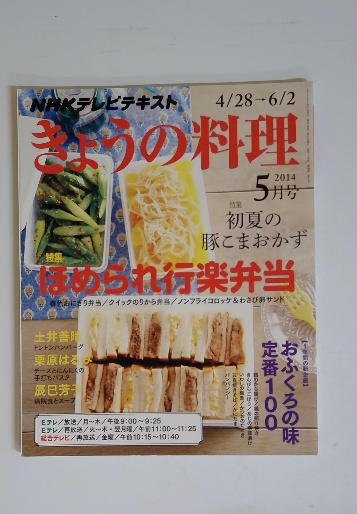 NHKテレビテキスト
4/28→6/2
きょうの料理
2014
5月号
特集
初夏の
豚こまおかず
特集
ほめられ行楽弁当
春色おにぎり弁当/クイックのりから弁当/ノンフライコロッケ&わさび卵サンド
土井善晴
トントンハンバーグ
栗原はるみ
チーズとにんにくの
手打ちパスタ
辰巳芳子
病院食とスープ
おふくろの味
定番100
Eテレ/放送/月〜木/午後9:00〜9:25
Eテレ/再放送/火〜木・翌月曜/午前11:00〜11:25
総合テレビ/再放送/金曜/午前10:15〜10:40